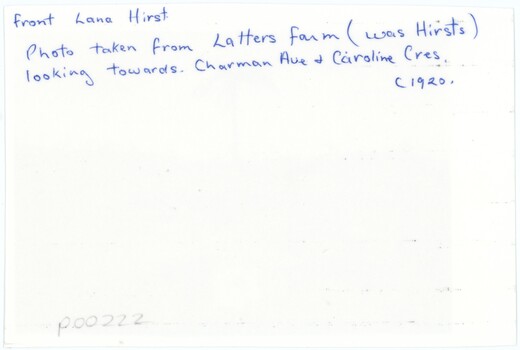 front Lana Hirst
Photo taken from Latters farm (was Hirsts)
looking towards. Charman Ave & Caroline Cres.
C1920.
P00222